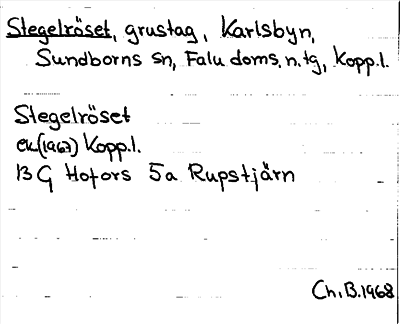 Stegelröset, grustag, Karlsbyn,
Sundborns sn, Falu doms. n. tg, Kopp.l.
Stegelröset
ek(1967) Kopp.l.
13 G Hofors 5a Rupstjärn
Ch.B.1968